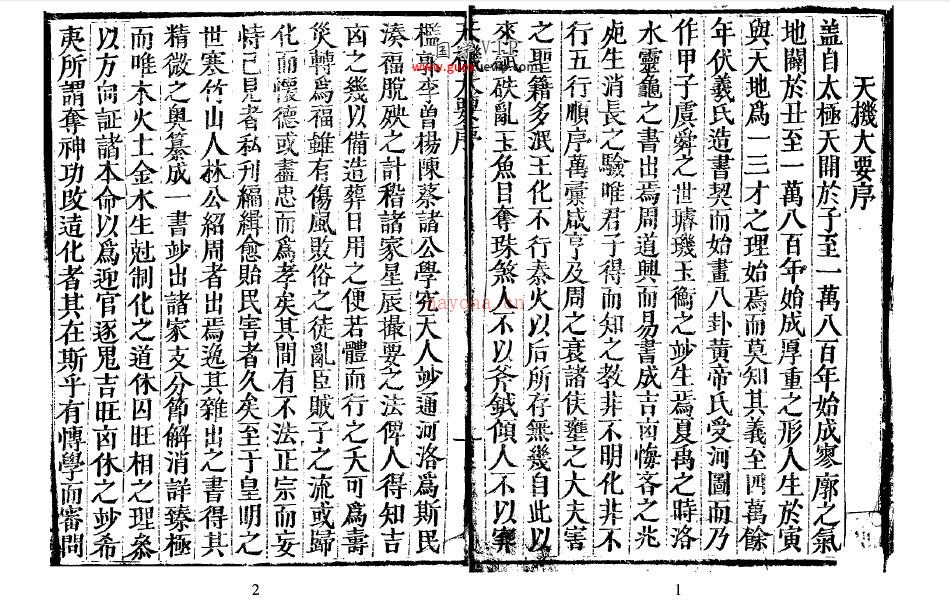 天機大要序
盖自太極天開於子至一萬八百年始成寥廓之氣
地闢於丑至一萬八百年始成厚重之形人生於寅
與天地爲一三才之理始焉而莫知其義至四萬餘
年伏義氏造書契而始畫八卦黃帝氏受河圖而乃
作甲子虞舜之世璿璣玉衡之妙生焉夏禹之時洛
水靈龜之書出焉周道興而易書成吉凶悔吝之兆
死生消長之驗唯君子得而知之教非不明化非不
行五行順序萬彙咸亨及周之衰諸侯壅之大夫害
之聖籍多泯王化不行秦火以后所存無幾自此以
來碔砆亂玉魚目奪珠煞人不以斧鉞傾人不以
天機大要序
楊郭李曽楊陳蔡諸公學究天人妙通河洛爲斯民
湊福脫殃之計稽諸家星辰撮要之法俾人得知吉
凶之幾以備造葬日用之便若體而行之夭可爲壽
災轉爲福雖有傷風敗俗之徒亂臣賊子之流或歸
化而懷德或盡忠而爲孝矣其間有不法正宗而妄
恃己見者私刋編緝愈貽民害者久矣至于皇明之
世寒竹山人林公紹周者出焉逸其雜出之書得其
精微之奧纂成一書妙出諸家支分節解消詳臻極
而唯木火土金水生尅制化之道休囚旺相之理叅
以方向証諸本命以爲迎官逐鬼吉旺凶休之妙希
夷所謂奪神功改造化者其在斯乎有博學而審問
1
2